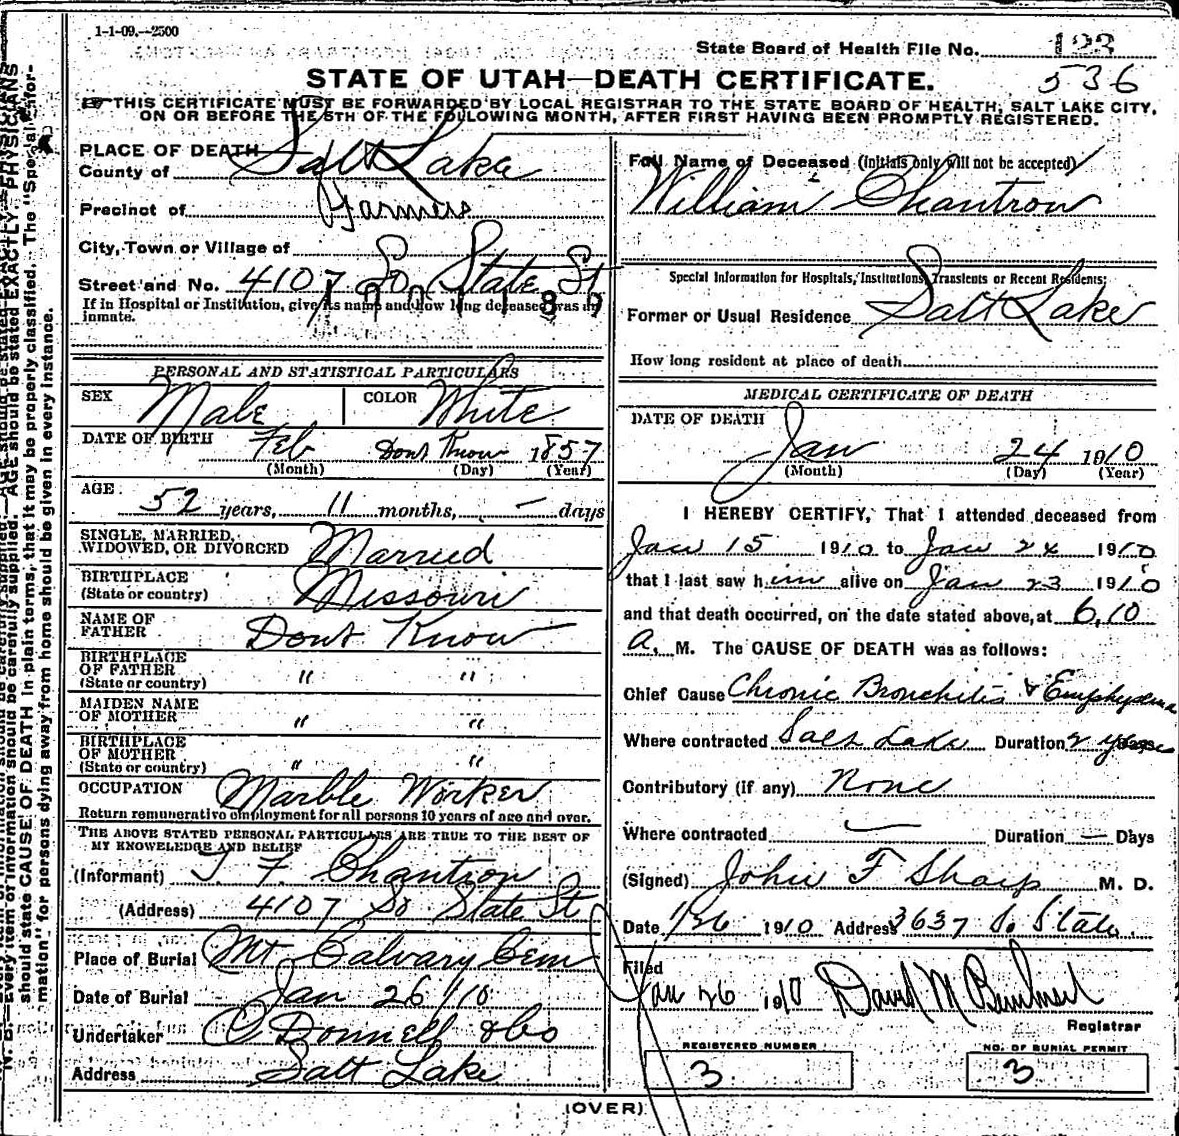 1-1-09.--2500
State Board of Health File No. 123
536
STATE OF UTAH—DEATH CERTIFICATE.
THIS CERTIFICATE MUST BE FORWARDED BY LOCAL REGISTRAR TO THE STATE BOARD OF HEALTH, SALT LAKE CITY,
ON OR BEFORE THE 5TH OF THE FOLLOWING MONTH, AFTER FIRST HAVING BEEN PROMPTLY REGISTERED.
PLACE OF DEATH
County of Salt Lake
Precinct of Farmers
City, Town or Village of
Street and No. 4107 So State St
If in Hospital or Institution, give its name and how long deceased was an
inmate.
PERSONAL AND STATISTICAL PARTICULARS
SEX Male COLOR White
DATE OF BIRTH Feb Dont Know 1857
(Month) (Day) (Year)
AGE 52 years, 11 months, — days
SINGLE, MARRIED,
WIDOWED, OR DIVORCED Married
BIRTHPLACE
(State or country) Missouri
NAME OF
FATHER Dont Know
BIRTHPLACE
OF FATHER
(State or country) " "
MAIDEN NAME
OF MOTHER " "
BIRTHPLACE
OF MOTHER
(State or country) " "
OCCUPATION Marble Worker
Return remunerative employment for all persons 10 years of age and over.
THE ABOVE STATED PERSONAL PARTICULARS ARE TRUE TO THE BEST OF
MY KNOWELEDGE AND BELIEF
(Informant) T. F. Chantron
(Address) 4107 So State St
Place of Burial Mt Calvary Cem
Date of Burial Jan 26/10
Undertaker O'Donnell & Co
Address Salt Lake
Full Name of Deceased (Initials only will not be accepted)
William Chantron
Special Information for Hospitals, Institutions, Transients or Recent Residents:
Former or Usual Residence Salt Lake
How long resident at place of death
MEDICAL CERTIFICATE OF DEATH
DATE OF DEATH
Jan 24 1910
(Month) (Day) (Year)
I HEREBY CERTIFY, That I attended deceased from
Jan 15 1910 to Jan 24 1910
that I last saw him alive on Jan 23 1910
and that death occurred, on the date stated above, at 6,10
a. M. The CAUSE OF DEATH was as follows:
Chief Cause Chronic Bronchitis & Emphysema
Where contracted Salt Lake Duration 2 years
Contributory (if any) None
Where contracted — Duration — Days
(Signed) John F Sharp M. D.
Date 1/26 1910 Address 3637 So State
Filed
Jan 26 1910 David M
Registrar
REGISTERED NUMBER
3
NO. OF BURIAL PERMIT
3
(OVER)
N. B.—Every item of information should be carefully supplied. AGE should be stated EXACTLY. PHYSICIANS
should state CAUSE OF DEATH in plain terms, that it may be properly classified. The "Special Infor-
mation" for persons dying away from home should be given in every instance.